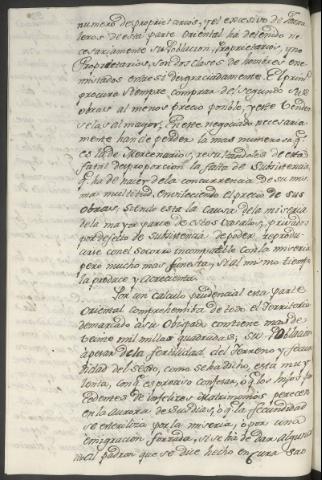 numero de propietarios, y el excesivo de Jorna
leros de esta parte Oriental ha detenido ne
cesariamente su Poblacion. Proprietarios, y no
Proprietarios, son dos clases de hombres ene
mistados entre sí desgraciadamente. El prim.
procura siempre comprar del segundo sus
obras al menos precio posible, y este vender
selas al mayor. En este negociado necesaria
mente han de perder la mas numerosa q.
es la de Mercenarios, resultandoles de esta
fatal desproporcion la falta de Subsistencia
q. ha de nacer de la concurrencia de su mis
ma multitud, envileciendo el precio de sus
obras, siendo esta la causa de la miseria
de la mayor parte de estos Vasallos, privados
por defecto de subsistencia de poder reprodu
cirse con el socorro incompatible con la miseria
pero mucho mas funesta, si al mismo tiempo
la produce y acrecenta.
Por un calculo prudencial esta parte
Oriental comprehensiva de todo el Territorio
demarcado a su Obispado contiene mas de
veinte mil millas quadradas; su Poblacion
apesar de la fertilidad del Terreno, y fecun
didad del sexo, como se ha dicho, está muy
lenta, conq. es preciso confesar, o q. los hijos pro
cedentes de infelices Matrimonios perecen
en la aurora de sus dias, o q. la fecundidad
se esteriliza por la miseria, o por una
emigracion forzada, si se há de dar alguna
al padron que se dice hecho en